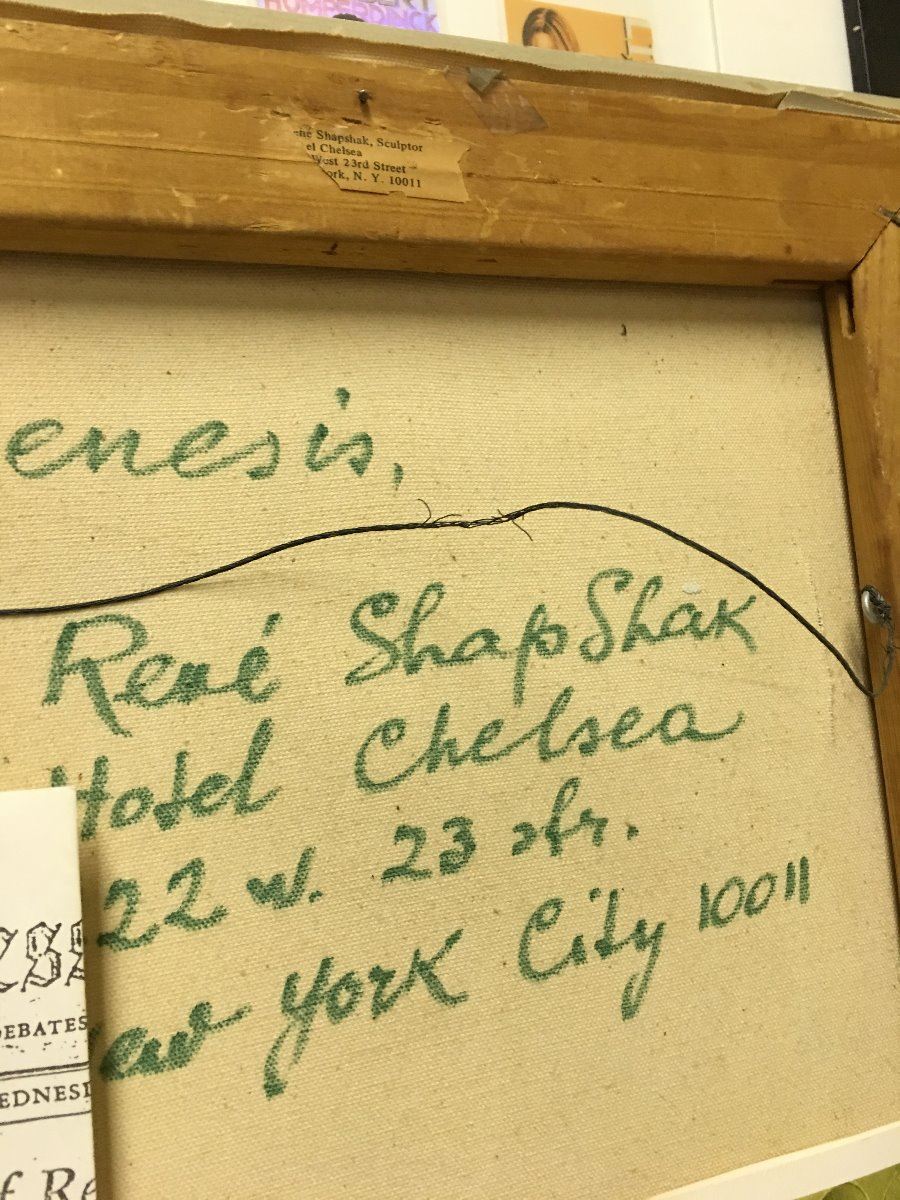 HUMPERDINCK
né Shapshak, Sculptor
el Chelsea
West 23rd Street
ork, N. Y. 10011
enesis,
René ShapShak
Hotel Chelsea
22 w. 23 str.
ew York City 10011
ESS
DEBATES
EDNESD
f Re